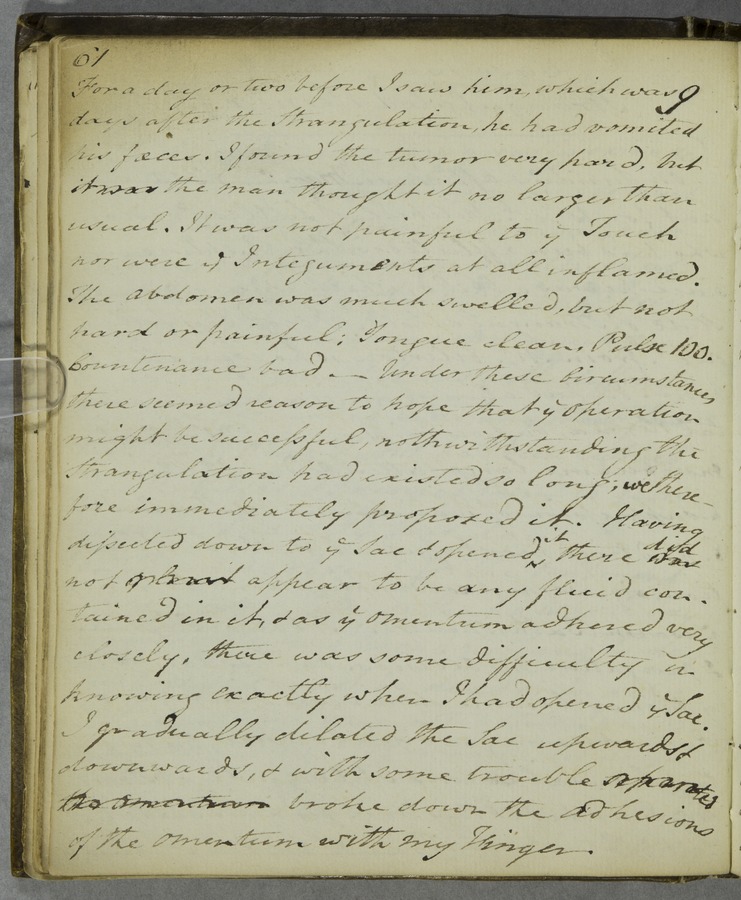 61
For a day or two before I saw him, which was 9
days after the Strangulation, he had vomited
his fæces. I found the tumor very hard, but
it was the man thought it no larger than
usual. It was not painful to ÿ Touch
nor were ÿ Integuments at all inflamed.
The abdomen was much swelled, but not
hard or painful; Tongue clean, Pulse 100.
Countenance bad. — Under these Circumstances
there seemed reason to hope that ÿ Operation
might be successful, nothwithstanding the
Strangulation had existed so long; we there-
fore immediately proposed it. Having
dissected down to ÿ Sac & opened it, there did was
not appear to be any fluid con-
tained in it, & as ÿ omentum adhered very
closely, there was some difficulty in
knowing exactly when I had opened ÿ Sac.
I gradually dilated the Sac upwards &
downwards, & with some trouble separated
the omentum broke down the adhesions
of the omentum with my Finger.